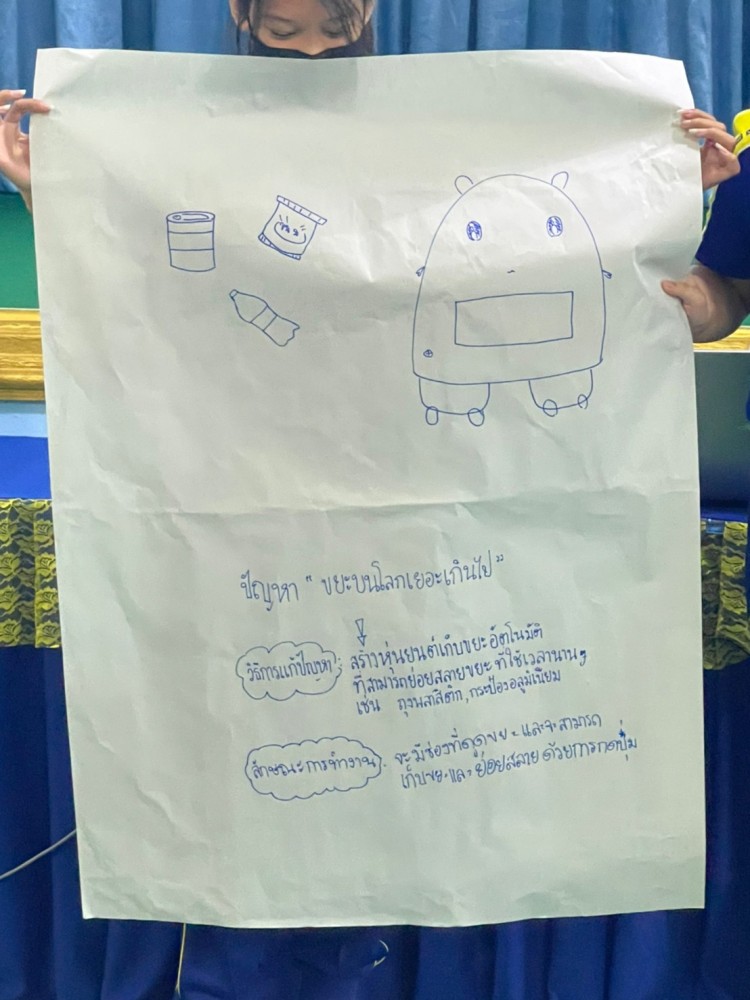 ปัญหา " ขยะบนโลกเยอะเกินไป "
วิธีการแก้ปัญหา : สร้างหุ่นยนต์เก็บขยะอัตโนมัติ
ที่สามารถย่อยสลายขยะ ที่ใช้เวลานานๆ
เช่น ถุงพลาสติก, กระป๋องอลูมิเนียม
ลักษณะการทำงาน : จะมีช่องที่ดูดขยะ และจะสามารถ
เก็บขยะและย่อยสลาย ด้วยการกดปุ่ม